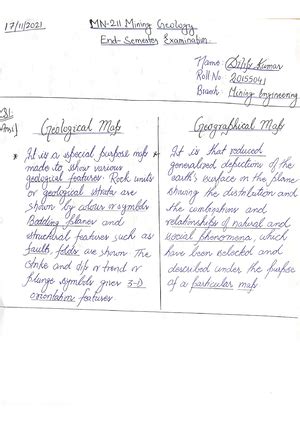 17/11/2021
MN-211 Mining Geology
End-Semester Examination
Name: Dilip Kumar
Roll No 20155041
Branch: Mining Engineering
Geological Map
* It is a special purpose map made to show various
geological features. Rock units
or geological strata are
shown by colour or symbols
Bedding planes and
structural features such as
fault, folds are shown. The
strike and dip or trend or
plunge symbols gives 3-D
orientation features
Geographical Map
It is that reduced
generalized depictions of the
earth's surface on the plane
showing the distribution and
the
relationships of natural and
social phenomena, which
have been selected and
described under the purpose
of a particular map